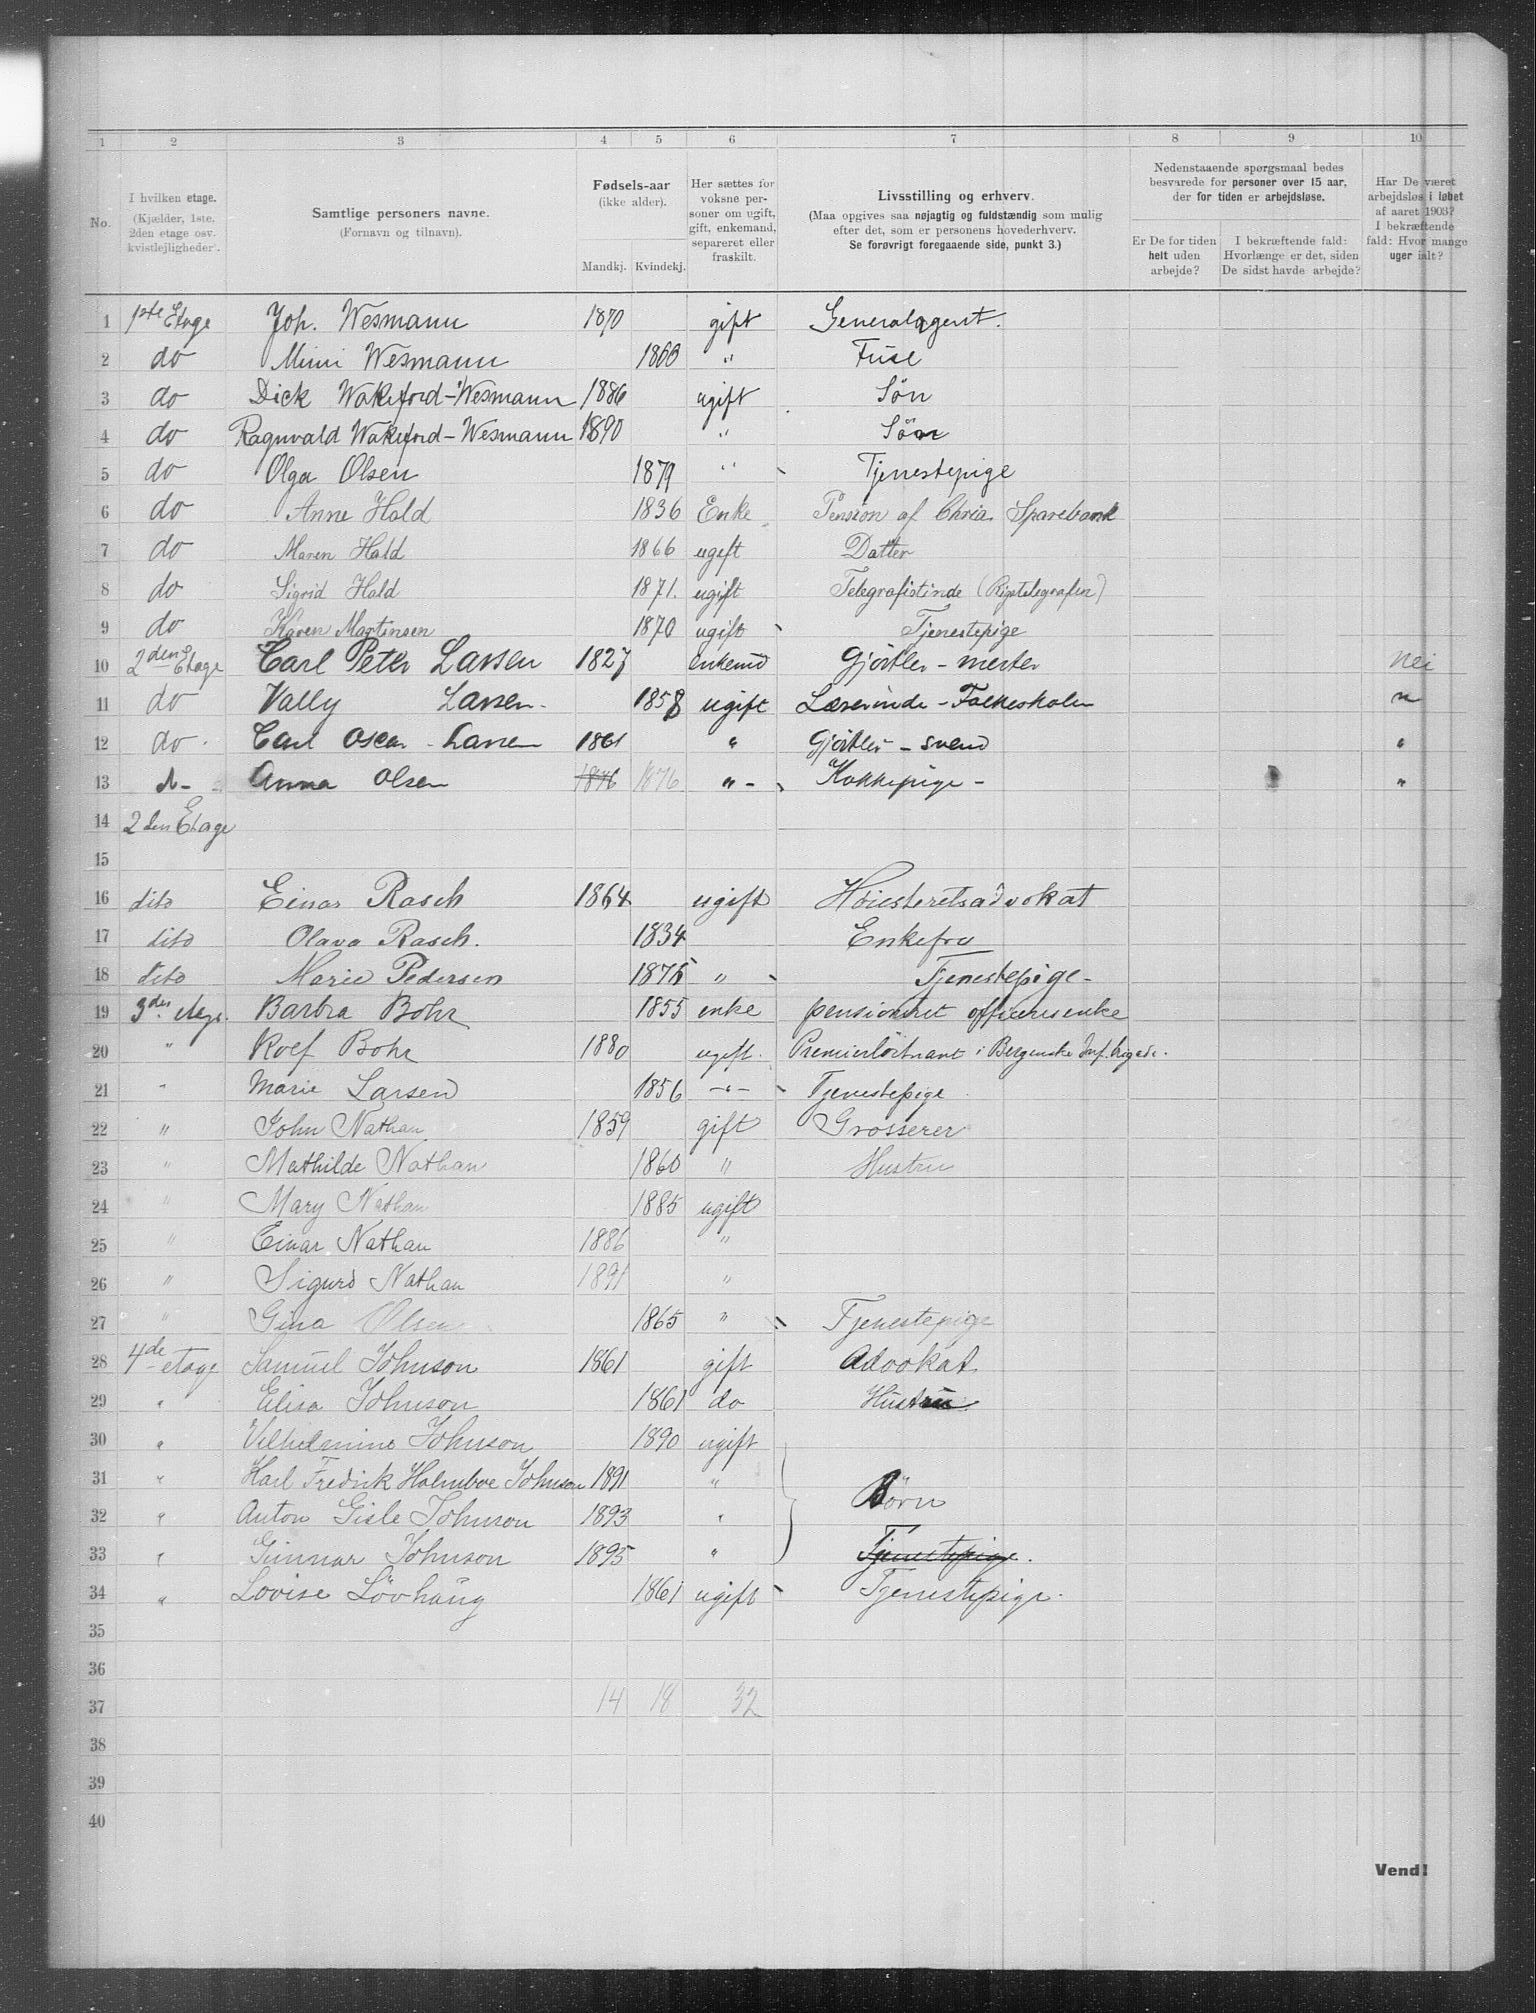 1 2 3 4 5 6 7 8 9 10
No.
I hvilken etage. (Kjælder, 1ste, 2den etage osv. kvistlejligheder).
Samtlige personers navne. (Fornavn og tilnavn).
Fødsels-aar (ikke alder). Mandkj. Kvindekj.
Her sættes for voksne personer om ugift, gift, enkemand, separeret eller fraskilt.
Livsstilling og erhverv. (Maa opgives saa nøjagtig og fuldstændig som mulig efter det, som er personens hovederhverv. Se forøvrigt foregaaende side, punkt 3.)
Nedenstaaende spørgsmaal bedes besvarede for personer over 15 aar, der for tiden er arbejdsløse.
Er De for tiden helt uden arbejde?
I bekræftende fald: Hvorlænge er det, siden De sidst havde arbejde?
Har De været arbejdsløs i løbet af aaret 1903? I bekræftende fald: Hvor mange uger ialt?
1 1ste Etage Joh. Wesmann 1870 gift Generalagent.
2 do Mimi Wesmann 1863 " Frue
3 do Dick Wakeford-Wesmann 1886 ugift Søn
4 do Ragnvald Wakeford-Wesmann 1890 " Søn
5 do Olga Olsen 1879 " Tjenestepige
6 do Anne Hald 1836 Enke Pension af Chria. Sparebank
7 do Maren Hald 1866 ugift Datter
8 do Sigrid Hald 1871. ugift Telegrafistinde (Rigstelegrafen)
9 do Karen Martinsen 1870 ugift Tjenestepige
10 2den Etage Carl Peter Larsen 1827 enkemd Gjørtler-mester nei
11 do Vally Larsen. 1858 ugift Lærerinde - Folkeskolen "
12 do. Carl Oscar Larsen 1861 " Gjørtler - svend "
13 d- Anna Olsen 1876 1876 " - Kokkepige - "
14 2den Etage
15
16 dito Einar Rasch 1864 ugift Høiesteretsadvokat
17 dito Olava Rasch. 1834 Enkefru
18 dito Marie Pedersen 1875 " Tjenestepige-
19 3die etage. Barbra Bohr 1855 enke pensioneret officersenke
20 " Rolf Bohr 1880 ugift. Premierløitnant i Bergenske Inf. brigade.
21 " Marie Larsen 1856 -"- Tjenestepige
22 " John Nathan 1859 gift Grosserer
23 " Mathilde Nathan 1860 " Hustru
24 " Mary Nathan 1885 ugift
25 " Einar Nathan 1886 "
26 " Sigurd Nathan 1891 "
27 " Gina Olsen 1865 " Tjenestepige
28 4de etage Samuel Johnson 1861 gift Advokat
29 " Elisa Johnson 1861 do Hustru
30 " Vilhelmine Johnson 1890 ugift
31 " Karl Fredrik Holmboe Johnson 1891 " Børn
32 " Anton Gisle Johnson 1893 "
33 " Gunnar Johnson 1895 " Tjenestepige.
34 " Lovise Løvhaug 1861 ugift Tjenestepige.
35
36
37 14 18 32
38
39
40
Vend!